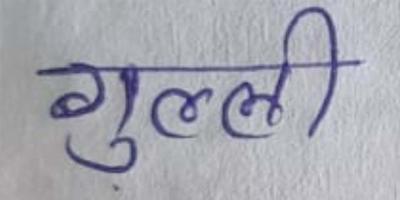 गुल्ली